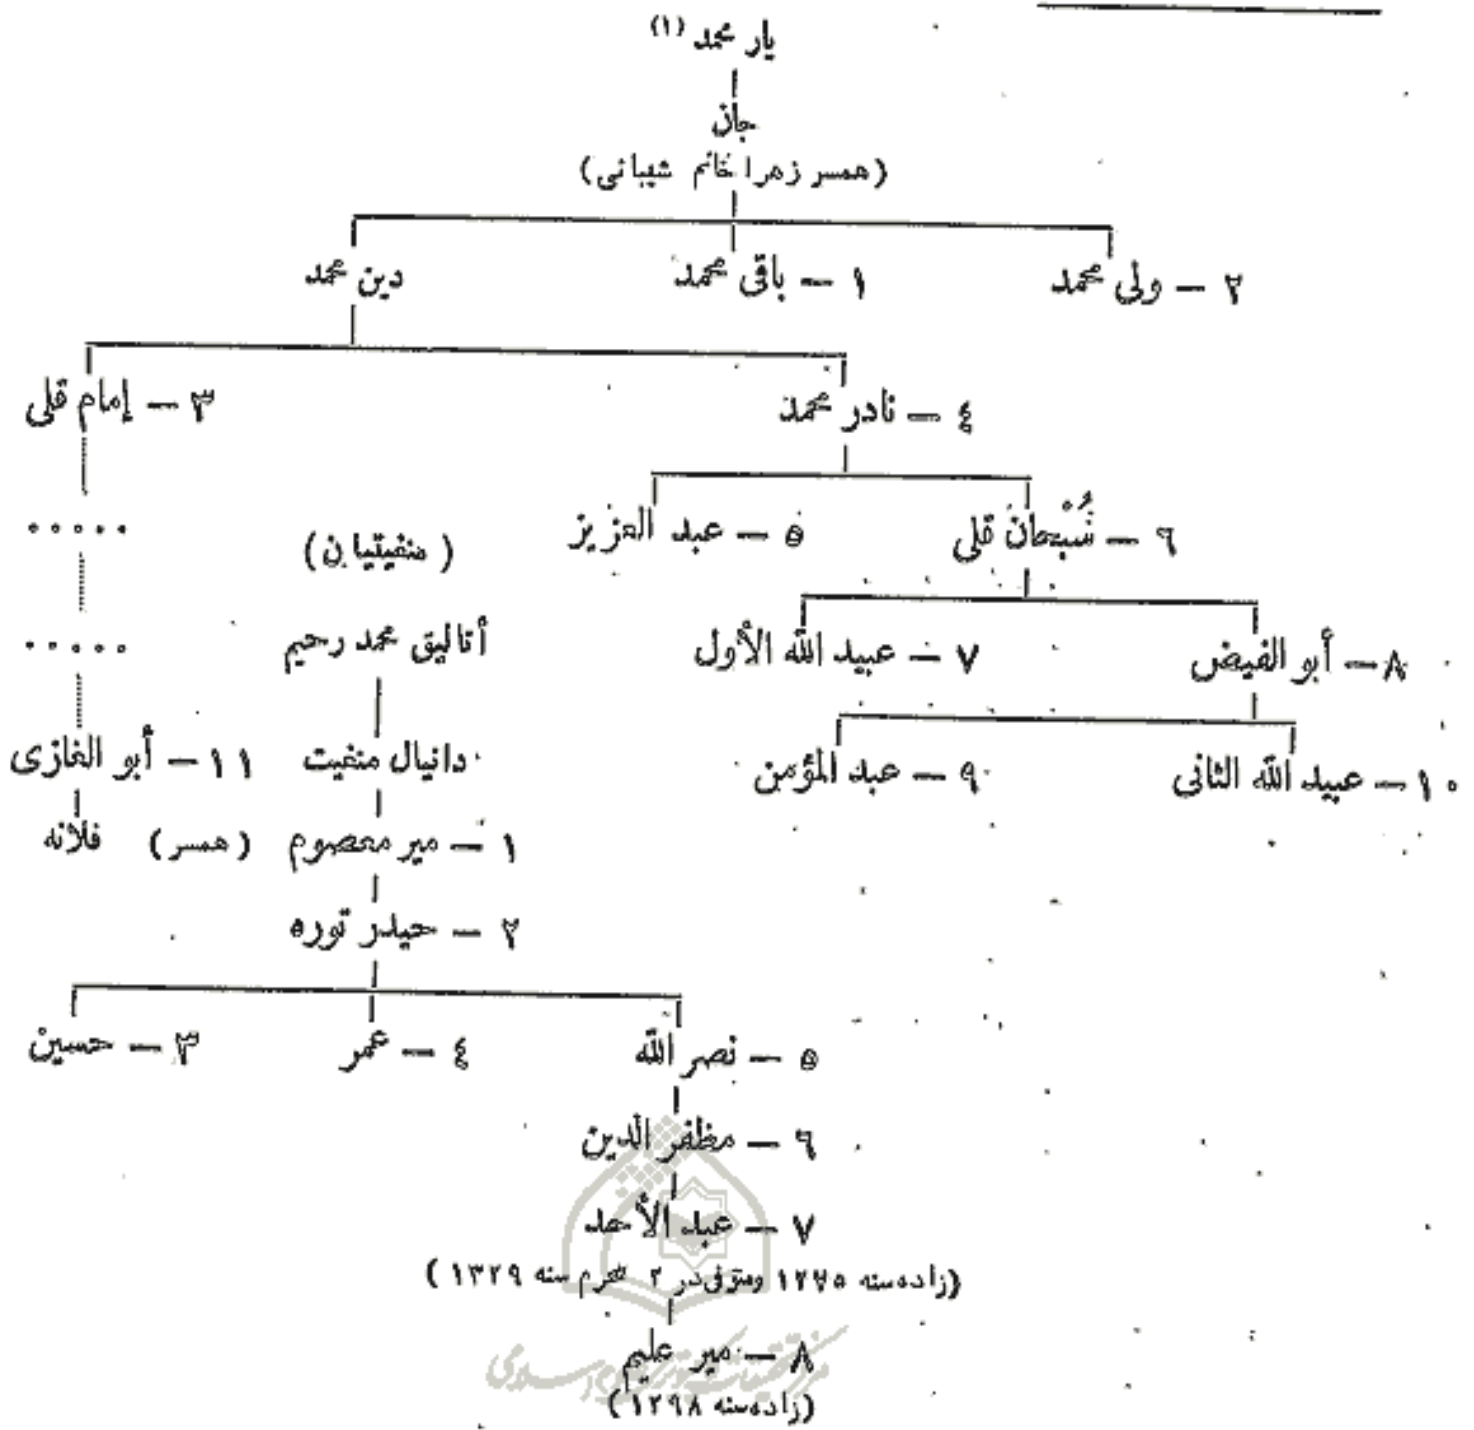 يار محمد (١)
جان
(همسر زهرا خانم شيبانى)
٢ — ولى محمد
١ — باقى محمد
دين محمد
٤ — نادر محمد
٣ — إمام قلى
٦ — سُبْحان قلى
٥ — عبد العزيز
(منفيتيان)
.....
٨ — أبو الفيض
٧ — عبيد الله الأول
أتاليق محمد رحيم
.....
١٠ — عبيد الله الثانى
٩ — عبد المؤمن
دانيال منفيت
١١ — أبو الغازى
١ — مير معصوم (همسر) فلانه
٢ — حيدر توره
٥ — نصر الله
٤ — عمر
٣ — حسين
٦ — مظفر الدين
٧ — عبد الأحد
(زاده سنه ١٢٧٥ ومتوفى در ٢ محرم سنه ١٣٢٩)
٨ — مير عليم
(زاده سنه ١٢٩٨)